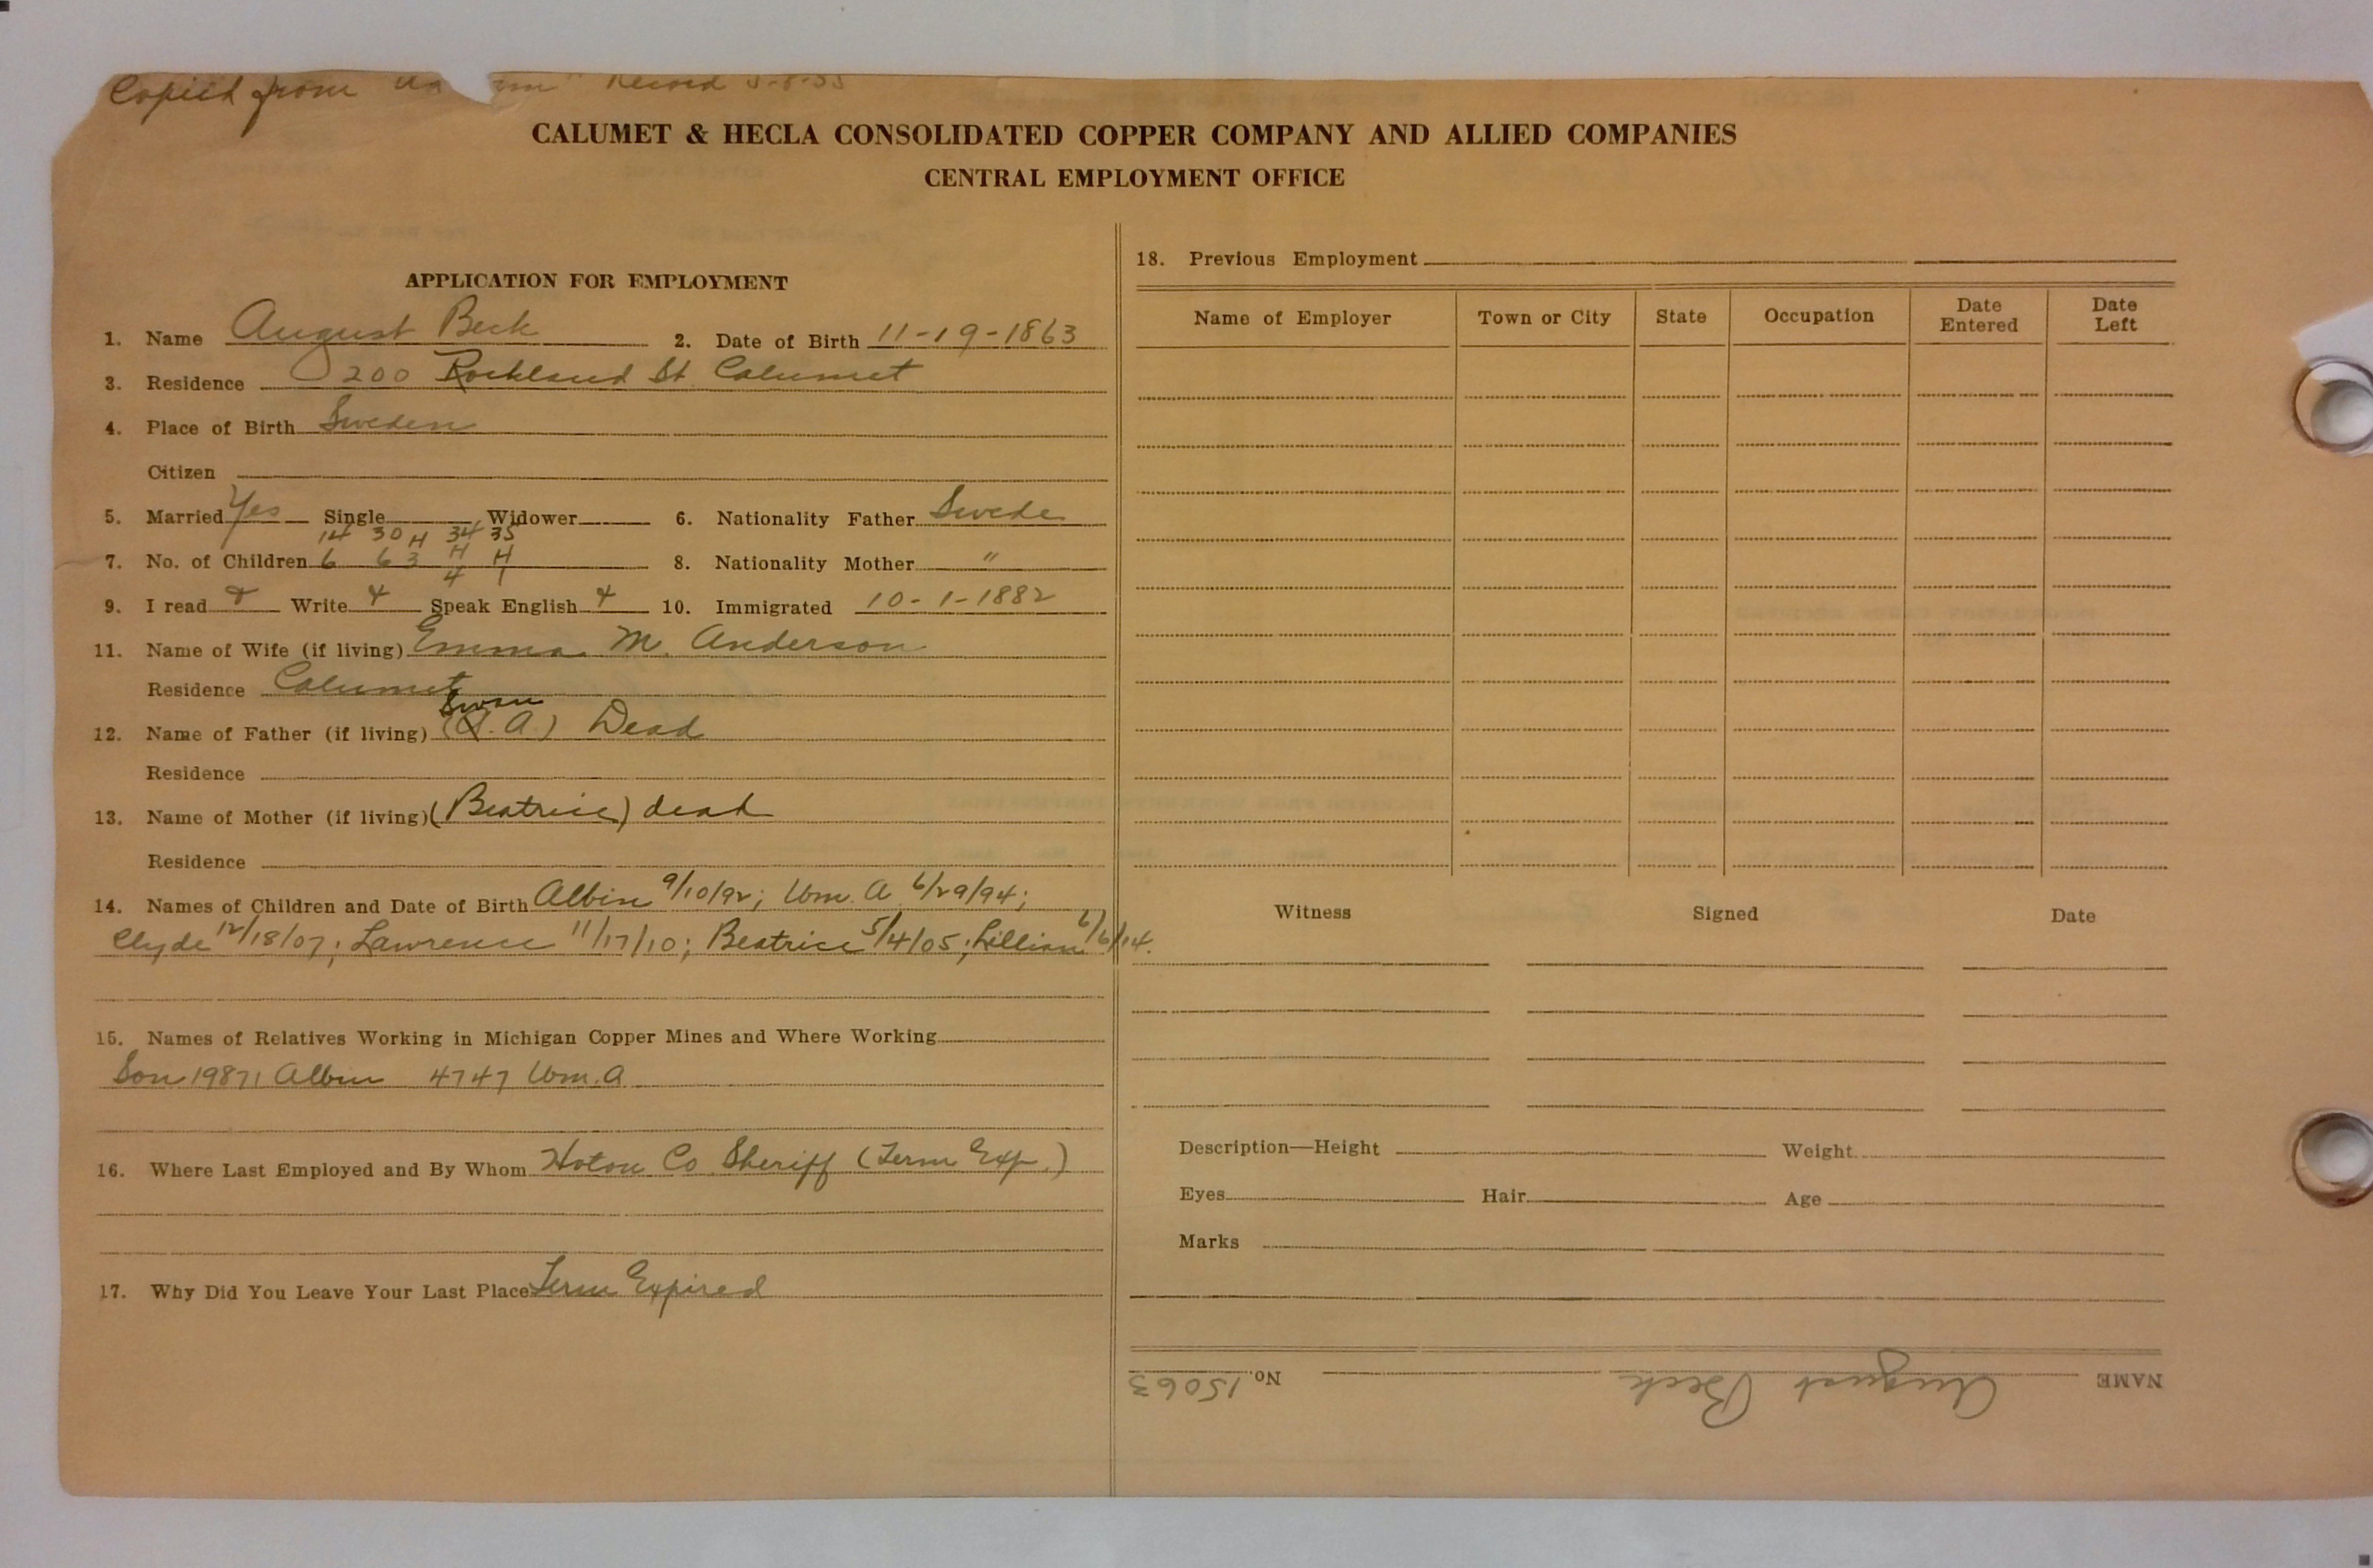 Copied from Record 5-8-35
CALUMET & HECLA CONSOLIDATED COPPER COMPANY AND ALLIED COMPANIES
CENTRAL EMPLOYMENT OFFICE
APPLICATION FOR EMPLOYMENT
1. Name August Beck 2. Date of Birth 11-19-1863
3. Residence 200 Rockland St Calumet
4. Place of Birth Sweden
Citizen
5. Married Yes Single Widower 6. Nationality Father Swede
14 30 H 34 35
7. No. of Children 6 6 3 H H 8. Nationality Mother "
4 1
9. I read Write Speak English 10. Immigrated 10-1-1882
11. Name of Wife (if living) Emma M. Anderson
Residence Calumet
Swan
12. Name of Father (if living) (A.) Dead
Residence
13. Name of Mother (if living) (Beatrice) dead
Residence
14. Names of Children and Date of Birth Albin 9/10/92; Wm. A 6/29/94;
Clyde 12/18/07; Lawrence 11/17/10; Beatrice 5/4/05; Lillian 6/6/14.
15. Names of Relatives Working in Michigan Copper Mines and Where Working
Son 19871 Albin 4747 Wm. A
16. Where Last Employed and By Whom Hoton Co Sheriff (Term Exp.)
17. Why Did You Leave Your Last Place Term Expired
18. Previous Employment
Name of Employer Town or City State Occupation Date Entered Date Left
Witness Signed Date
Description—Height Weight
Eyes Hair Age
Marks
NAME August Beck No. 15063